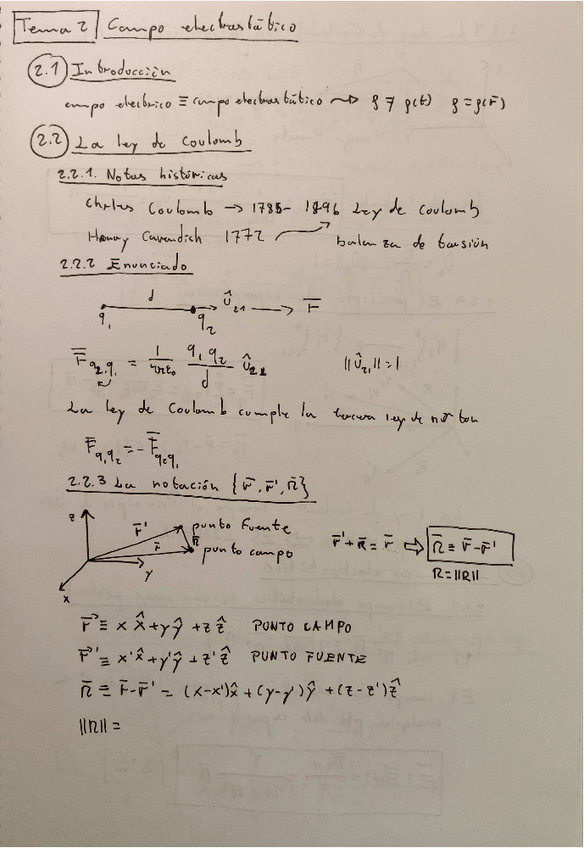 Tema 2 Campo electrostático
2.1 Introducción
campo electrico ≡ campo electrostático ⟿ ρ ≠ ρ(t) ρ = ρ(r̄)
2.2 La ley de Coulomb
2.2.1. Notas históricas
Charles Coulomb → 1785- 1896 Ley de Coulomb
Henry Cavendich 1772 balanza de torsión
2.2.2 Enunciado
d û₂₁ → F̄
q₁ q₂
F̄q₂q₁ = 1/4πε₀ q₁ q₂/d û₂₁ ||û₂₁||=1
La ley de Coulomb cumple la tercera ley de newton
F̄q₁q₂ = -F̄q₂q₁
2.2.3 La notación {r̄, r̄', R̄}
z r̄' punto Fuente
r̄ R̄ punto campo r̄'+R̄ = r̄ ⇒ R̄ ≡ r̄-r̄'
y R=||R||
x
r⃗ ≡ x x̂ + y ŷ + z ẑ PUNTO CAMPO
r⃗' ≡ x' x̂ + y' ŷ + z' ẑ PUNTO FUENTE
R̄ ≡ r̄-r̄' = (x-x')x̂ + (y-y')ŷ + (z-z')ẑ
||R|| =